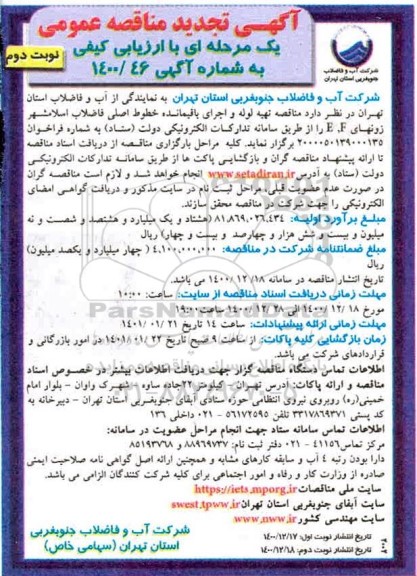 آگهی تجدید مناقصه عمومی
یک مرحله ای با ارزیابی کیفی
به شماره آگهی ۴۶ /۱۴۰۰
نوبت دوم
شرکت آب و فاضلاب
جنوبغربی استان تهران
شرکت آب و فاضلاب جنوبغربی استان تهران به نمایندگی از آب و فاضلاب استان
تهران در نظر دارد مناقصه تهیه لوله و اجرای باقیمانده خطوط اصلی فاضلاب اسلامشهر
زونهای E ,F را از طریق سامانه تدارکات الکترونیکی دولت (ستاد) به شماره فراخوان
۲۰۰۰۰۵۰۱۳۹۰۰۰۱۳۵ برگزار نماید. کلیه مراحل بارگزاری مناقصه از دریافت اسناد مناقصه
تا ارائه پیشنهاد مناقصه گران و بازگشایی پاکت ها از طریق سامانه تدارکات الکترونیکی
دولت (ستاد) به آدرس www.setadiran.ir انجام خواهد شد و لازم است مناقصه گران
در صورت عدم عضویت قبلی، مراحل ثبت نام در سایت مذکور و دریافت گواهی امضای
الکترونیکی را جهت شرکت در مناقصه محقق سازند.
مبلغ برآورد اولیه: ۸۱,۸۶۹,۰۲۶,۴۳۴ (هشتاد و یک میلیارد و هشتصد و شصت و نه
میلیون و بیست و شش هزار و چهارصد و بیست و چهار) ریال
مبلغ ضمانتنامه شرکت در مناقصه: ۴,۱۰۰,۰۰۰,۰۰۰ ( چهار میلیارد و یکصد میلیون)
ریال
تاریخ انتشار مناقصه در سامانه ۱۴۰۰/۱۲/۱۸ می باشد.
مهلت زمانی دریافت اسناد مناقصه از سایت: ساعت: ۱۰:۰۰
مورخ ۱۸ /۱۴۰۰/۱۲ الی ۱۴۰۰/۱۲/۲۸ ساعت ۱۹:۰۰
مهلت زمانی ارائه پیشنهادات: ساعت ۱۴ تاریخ ۱۴۰۱/۰۱/۲۱
زمان بازگشایی کلیه پاکات: از ساعت ۸ صبح تاریخ ۱۴۰۱/۰۱/۲۲ در امور بازرگانی و
قراردادهای شرکت می باشد.
اطلاعات تماس دستگاه مناقصه گزار جهت دریافت اطلاعات بیشتر در خصوص اسناد
مناقصه و ارائه پاکات: آدرس تهران - کیلومتر ۲۲جاده ساوه - شهرک واوان - بلوار امام
خمینی(ره) روبروی نیروی انتظامی حوزه ستادی آبفای جنوبغربی استان تهران - دبیرخانه به
کد پستی ۳۳۱۷۸۶۹۳۷۱ تلفن ۵۶۱۷۲۵۹۵ - ۰۲۱ داخلی ۱۳۶
اطلاعات تماس سامانه ستاد جهت انجام مراحل عضویت در سامانه:
مرکز تماس۴۱۱۵۶ - ۰۲۱ دفتر ثبت نام: ۸۸۹۶۹۷۳۷ و ۸۵۱۹۳۷۶۸
دارا بودن رتبه ۴ آب و سابقه کارهای مشابه و همچنین ارائه اصل گواهی نامه صلاحیت ایمنی
صادره از وزارت کار و رفاه و امور اجتماعی برای کلیه شرکت کنندگان الزامی می باشد.
سایت ملی مناقصات https://iets.mporg.ir
سایت آبفای جنوبغربی استان تهران swest.tpww.ir
سایت مهندسی کشور www.nww.ir
تاریخ انتشار نوبت اول: ۱۴۰۰/۱۲/۱۷
تاریخ انتشار نوبت دوم: ۱۴۰۰/۱۲/۱۸
شرکت آب و فاضلاب جنوبغربی
استان تهران (سهامی خاص)